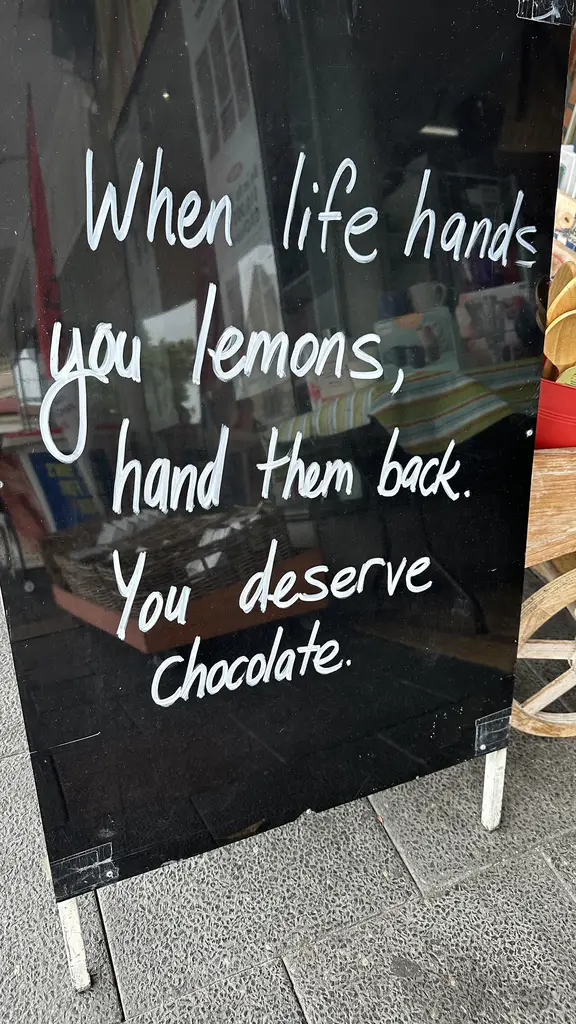 When life hands
you lemons,
hand them back.
You deserve
Chocolate.